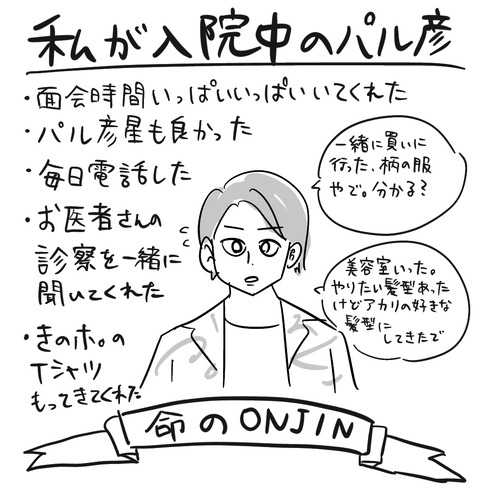 私が入院中のパル彦
・面会時間いっぱいいっぱいいてくれた
・パル彦星も良かった
・毎日電話した
・お医者さんの
診察を一緒に
聞いてくれた
・きのホ。の
Tシャツ
もってきてくれた
一緒に買いに
行った、柄の服
やで。分かる？
美容室いった。
やりたい髪型あった
けどアカリの好きな
髪型に
してきたで
命のONJIN